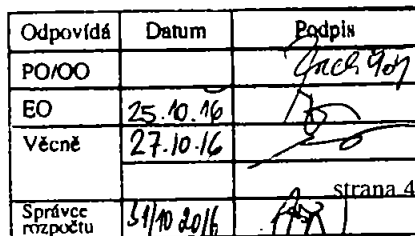 Odpovídá Datum Podpis
PO/OO
EO 25.10.16
Věcně 27.10.16
strana 4
Správce
rozpočtu 31/10 2016